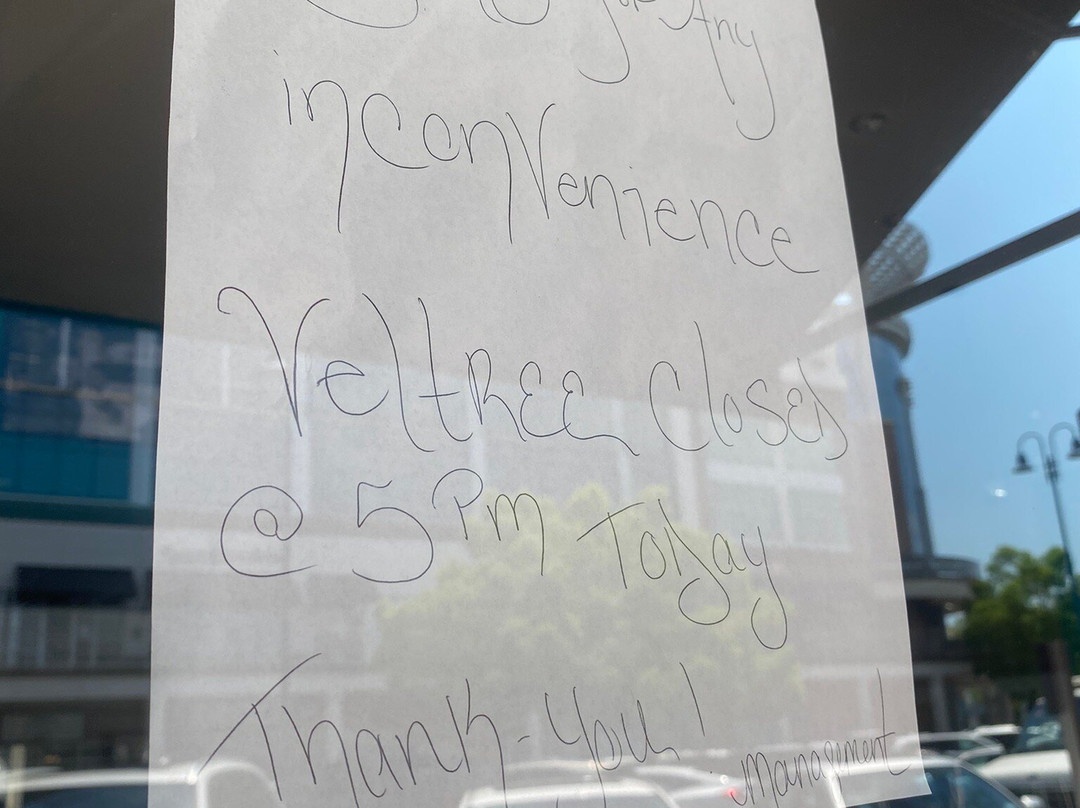 for Any
inconvenience
VeltREE Closed
@ 5Pm Today
Thank-you!
management